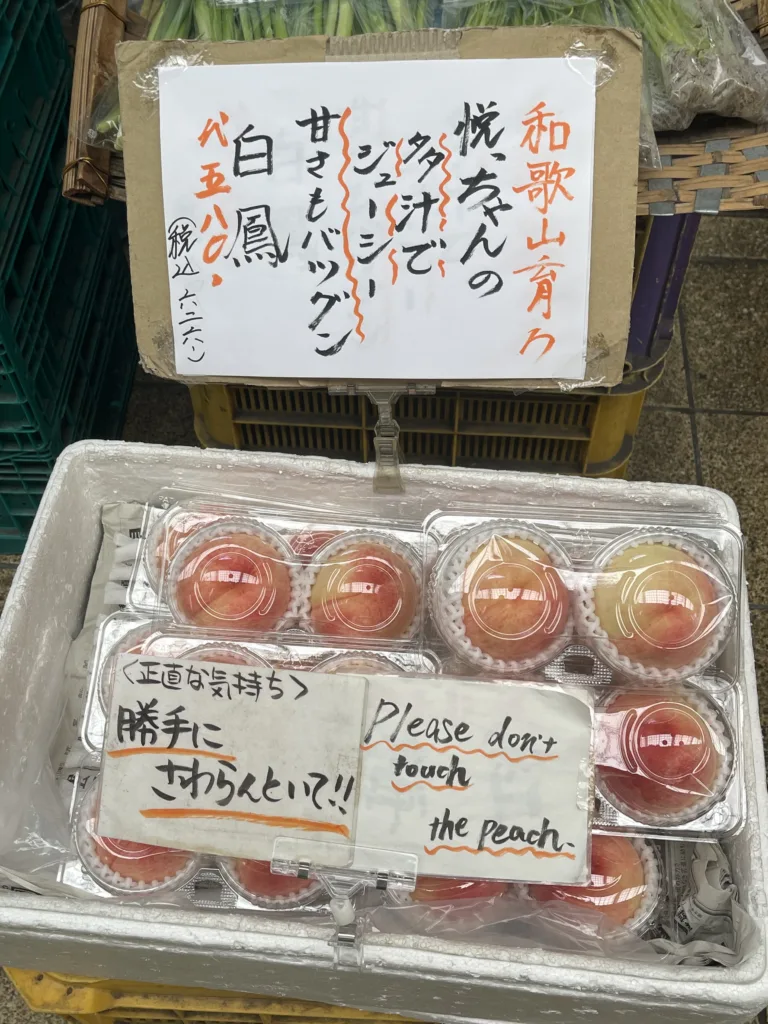 和歌山育ち
悦ちゃんの
多汁で
ジューシー
甘さもバツグン
白鳳
代五八〇.
(税込六二六.)
〈正直な気持ち〉
勝手に
さわらんといて!!
Please don't
touch
the peach.